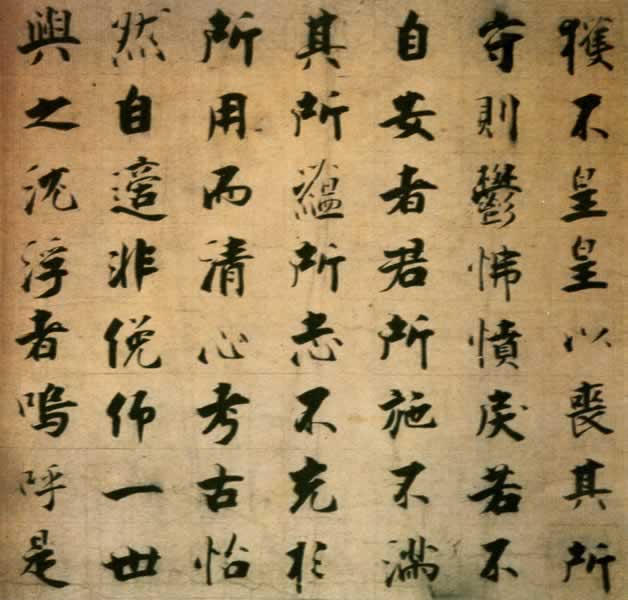 獲不皇皇以喪其所
守則鬱怫憤戾若不
自安者君所施不滿
其所蘊所志不充於
所用而清心考古怡
然自適非俛仰一世
與之沈浮者嗚呼是